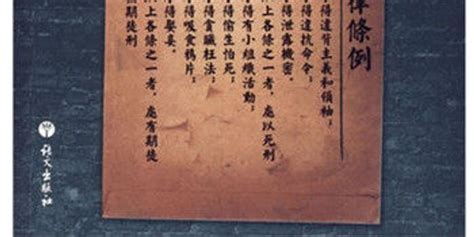 律條例
得違背主義和領袖；
得違抗命令；
得泄露機密。
上各條之一者，處以死刑
得有小組織活動；
得偷生怕死；
得貪贓枉法；
得吸食鴉片；
得
上各條之一者，處有期徒
期徒刑
语文出版社